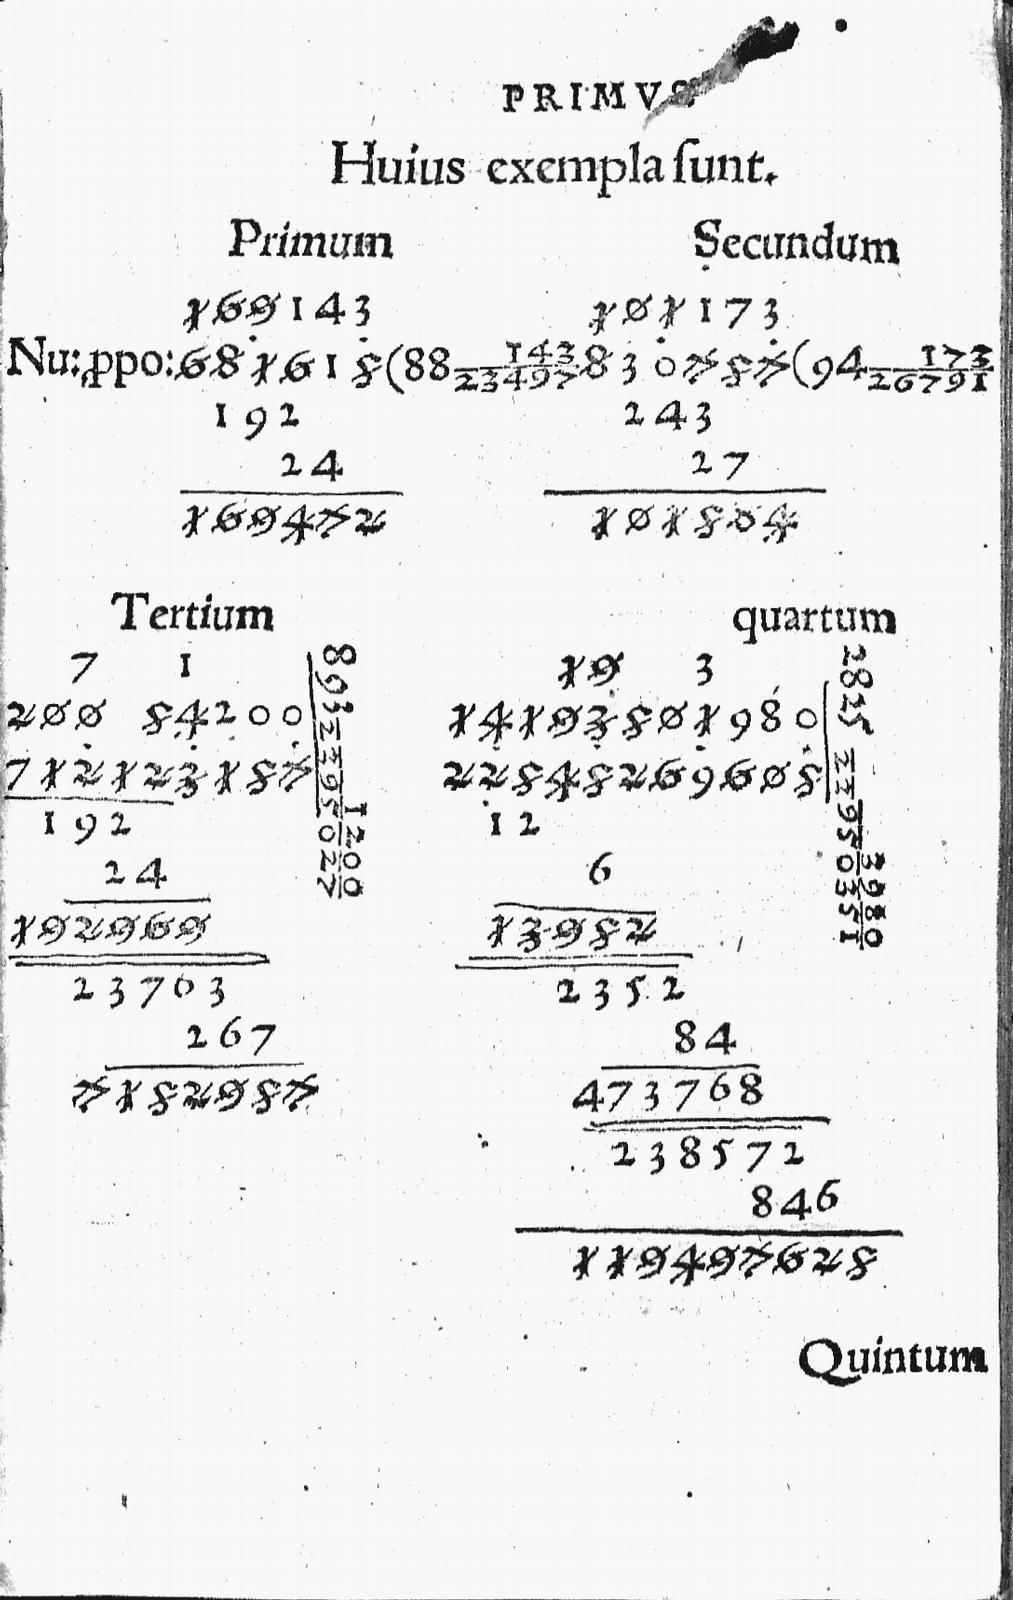 PRIMVS
Huius exempla ſunt.
Primum
169143
Nu: ꝓpo: 681615(88 143/23497
192
24
169472
Secundum
101173
830757(94 173/26791
243
27
101504
Tertium
7 1
200 54200
712123157
893 1200/2395027
192
24
192969
23763
267
7152957
quartum
19 3
14193501980
22545269605
2825 3980/23950351
12
6
13952
2352
84
473768
238572
846
119497625
Quintum